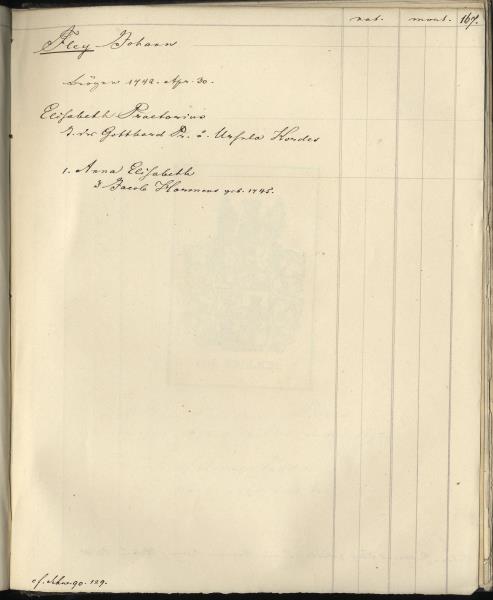 nat. mort. 167.
Fley Johann
Bürger 1742. Apr. 30.
Elisabeth Praetorius
T. des Gotthard Pr. & Ursula Kordes
1. Anna Elisabeth
Jacob Harmens geb. 1745.
cf. 90. 129.